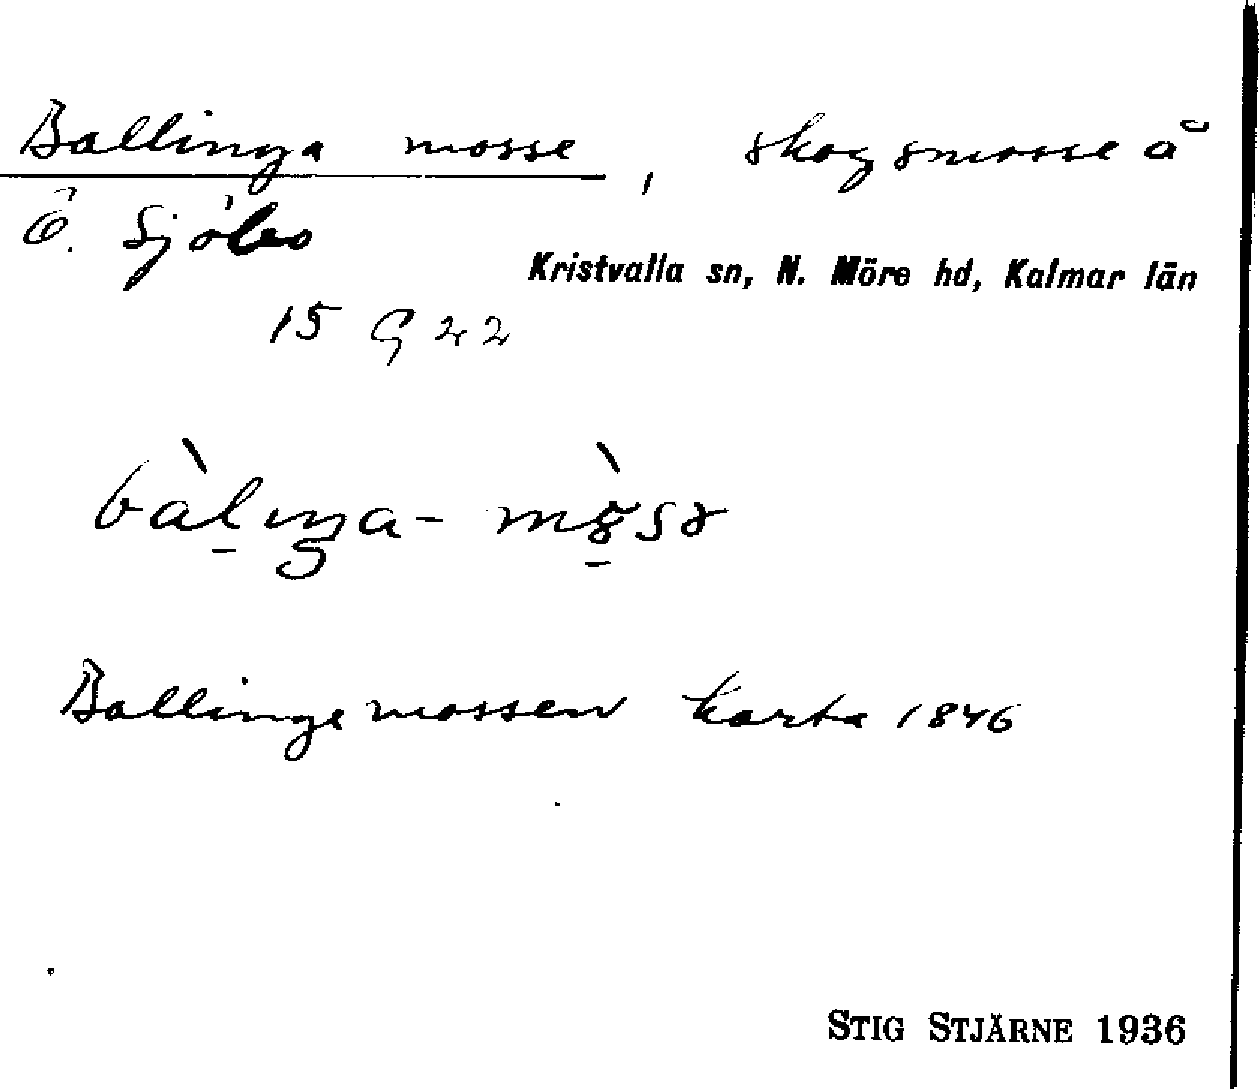 Ballinga mosse, skogsmosse å
Ö. Sjöbo
Kristvalla sn, N. Möre hd, Kalmar län
15 G 22
Ballinge mossen karta 1846
STIG STJÄRNE 1936